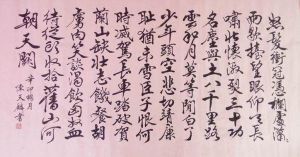 怒髮衝冠憑欄處瀟
雨歇抬望眼仰天長
嘯壯懷激烈三十功
名塵與土八千里路
雲和月莫等閒白了
少年頭空悲切靖康
恥猶未雪臣子恨何
時滅駕長車踏破賀
蘭山缺壯志饑餐胡
虜肉笑談渴飲匈奴血
待從頭收拾舊山河
朝天闕
辛卯月
天書